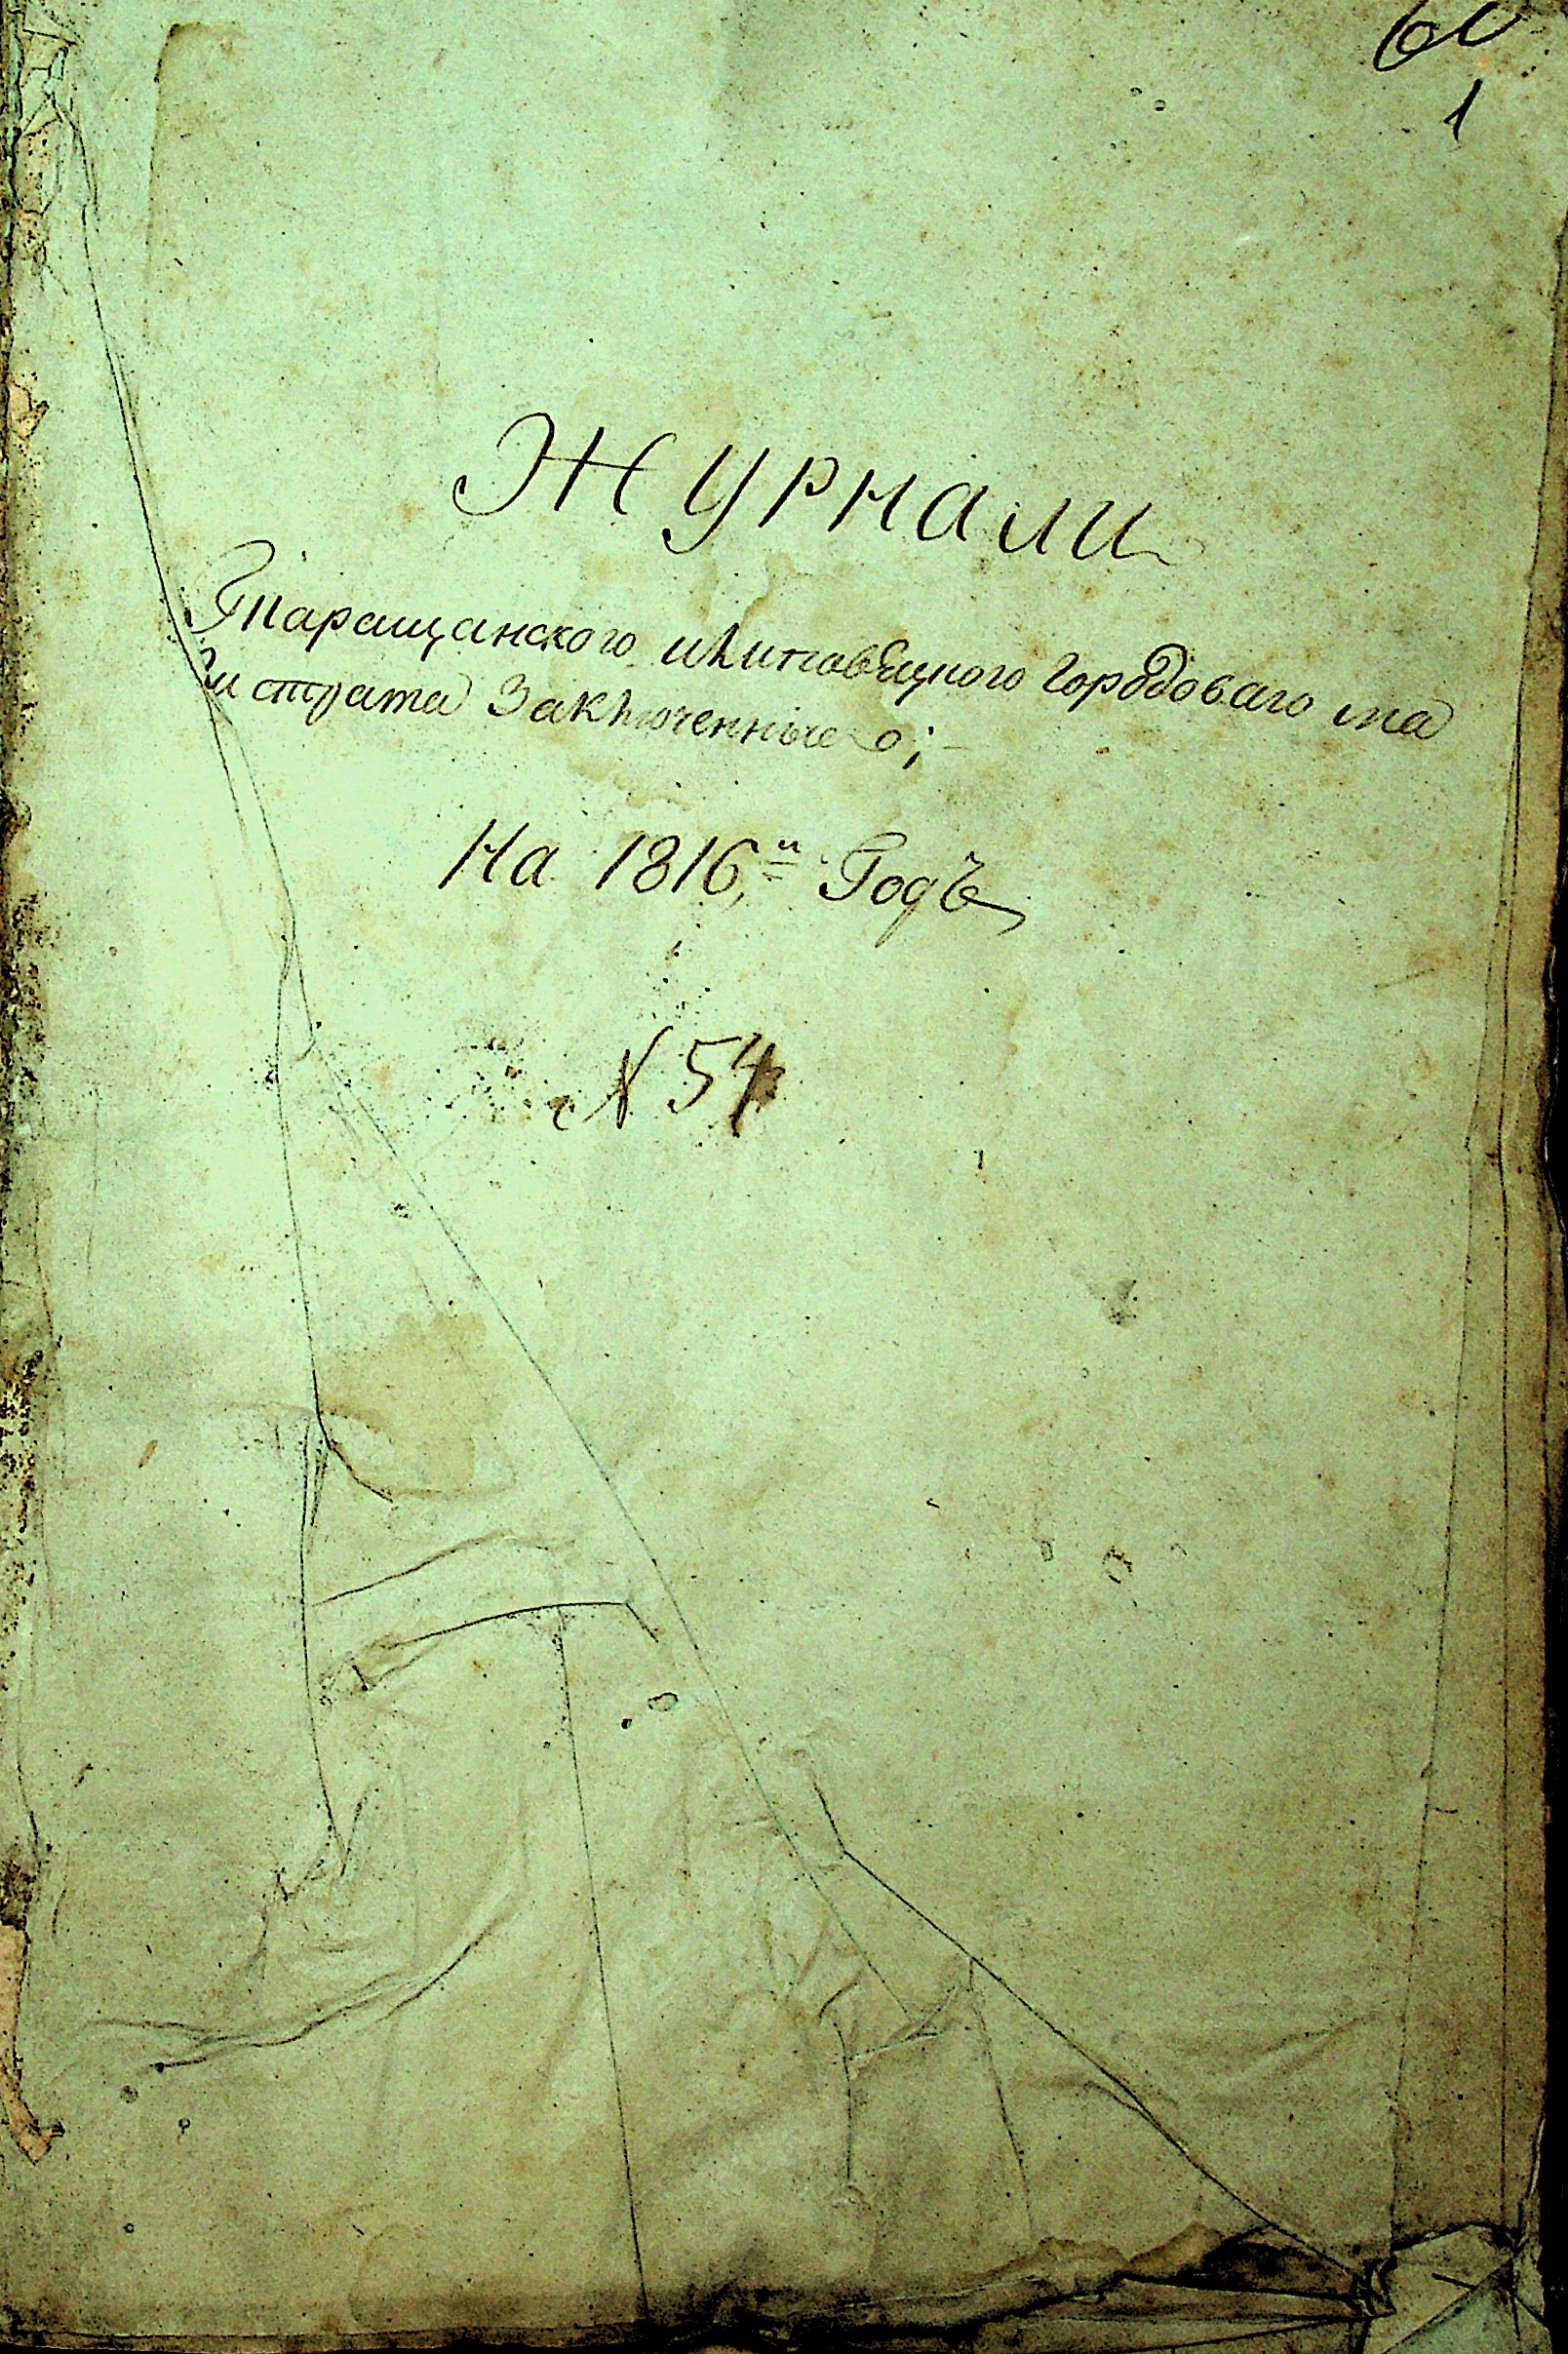 60
1
Журнали
Таращанского и Липовецкого Городоваго ма
гистрата Заключенные
На 1816.й Годъ
№ 54